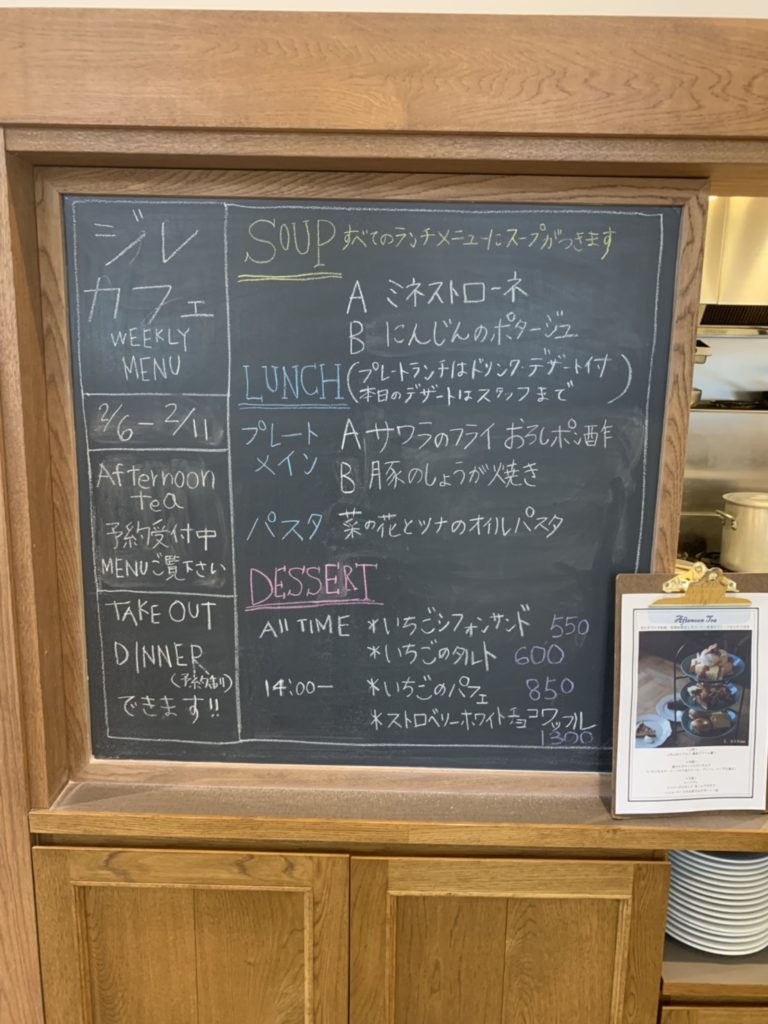 ジレ
カフェ
WEEKLY
MENU
2/6 - 2/11
Afternoon
tea
予約受付中
MENUご覧下さい
TAKE OUT
DINNER
できます!!
SOUP すべてのランチメニューにスープがつきます
A ミネストローネ
B にんじんのポタージュ
LUNCH (プレートランチはドリンク・デザート付
本日のデザートはスタッフまで)
プレート A サワラのフライ おろしポン酢
メイン B 豚のしょうが焼き
パスタ 菜の花とツナのオイルパスタ
DESSERT
All TIME *いちごシフォンサンド 550
*いちごのタルト 600
14:00- *いちごのパフェ 850
*ストロベリーホワイトチョコワッフル
1300
Afternoon Tea